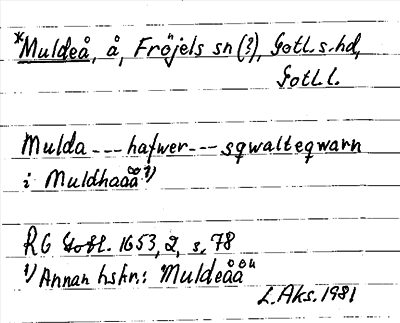 *Muldeå, å, Fröjels sn (?), Gotl. s. hd,
Gotl. l.
Mulda --- hafwer --- sqwalteqwarn
i Muldhaåå 1)
RG Gotl. 1653, 2, s. 78
1) Annan hskr.: "Muldeåå"
L. Aks. 1981